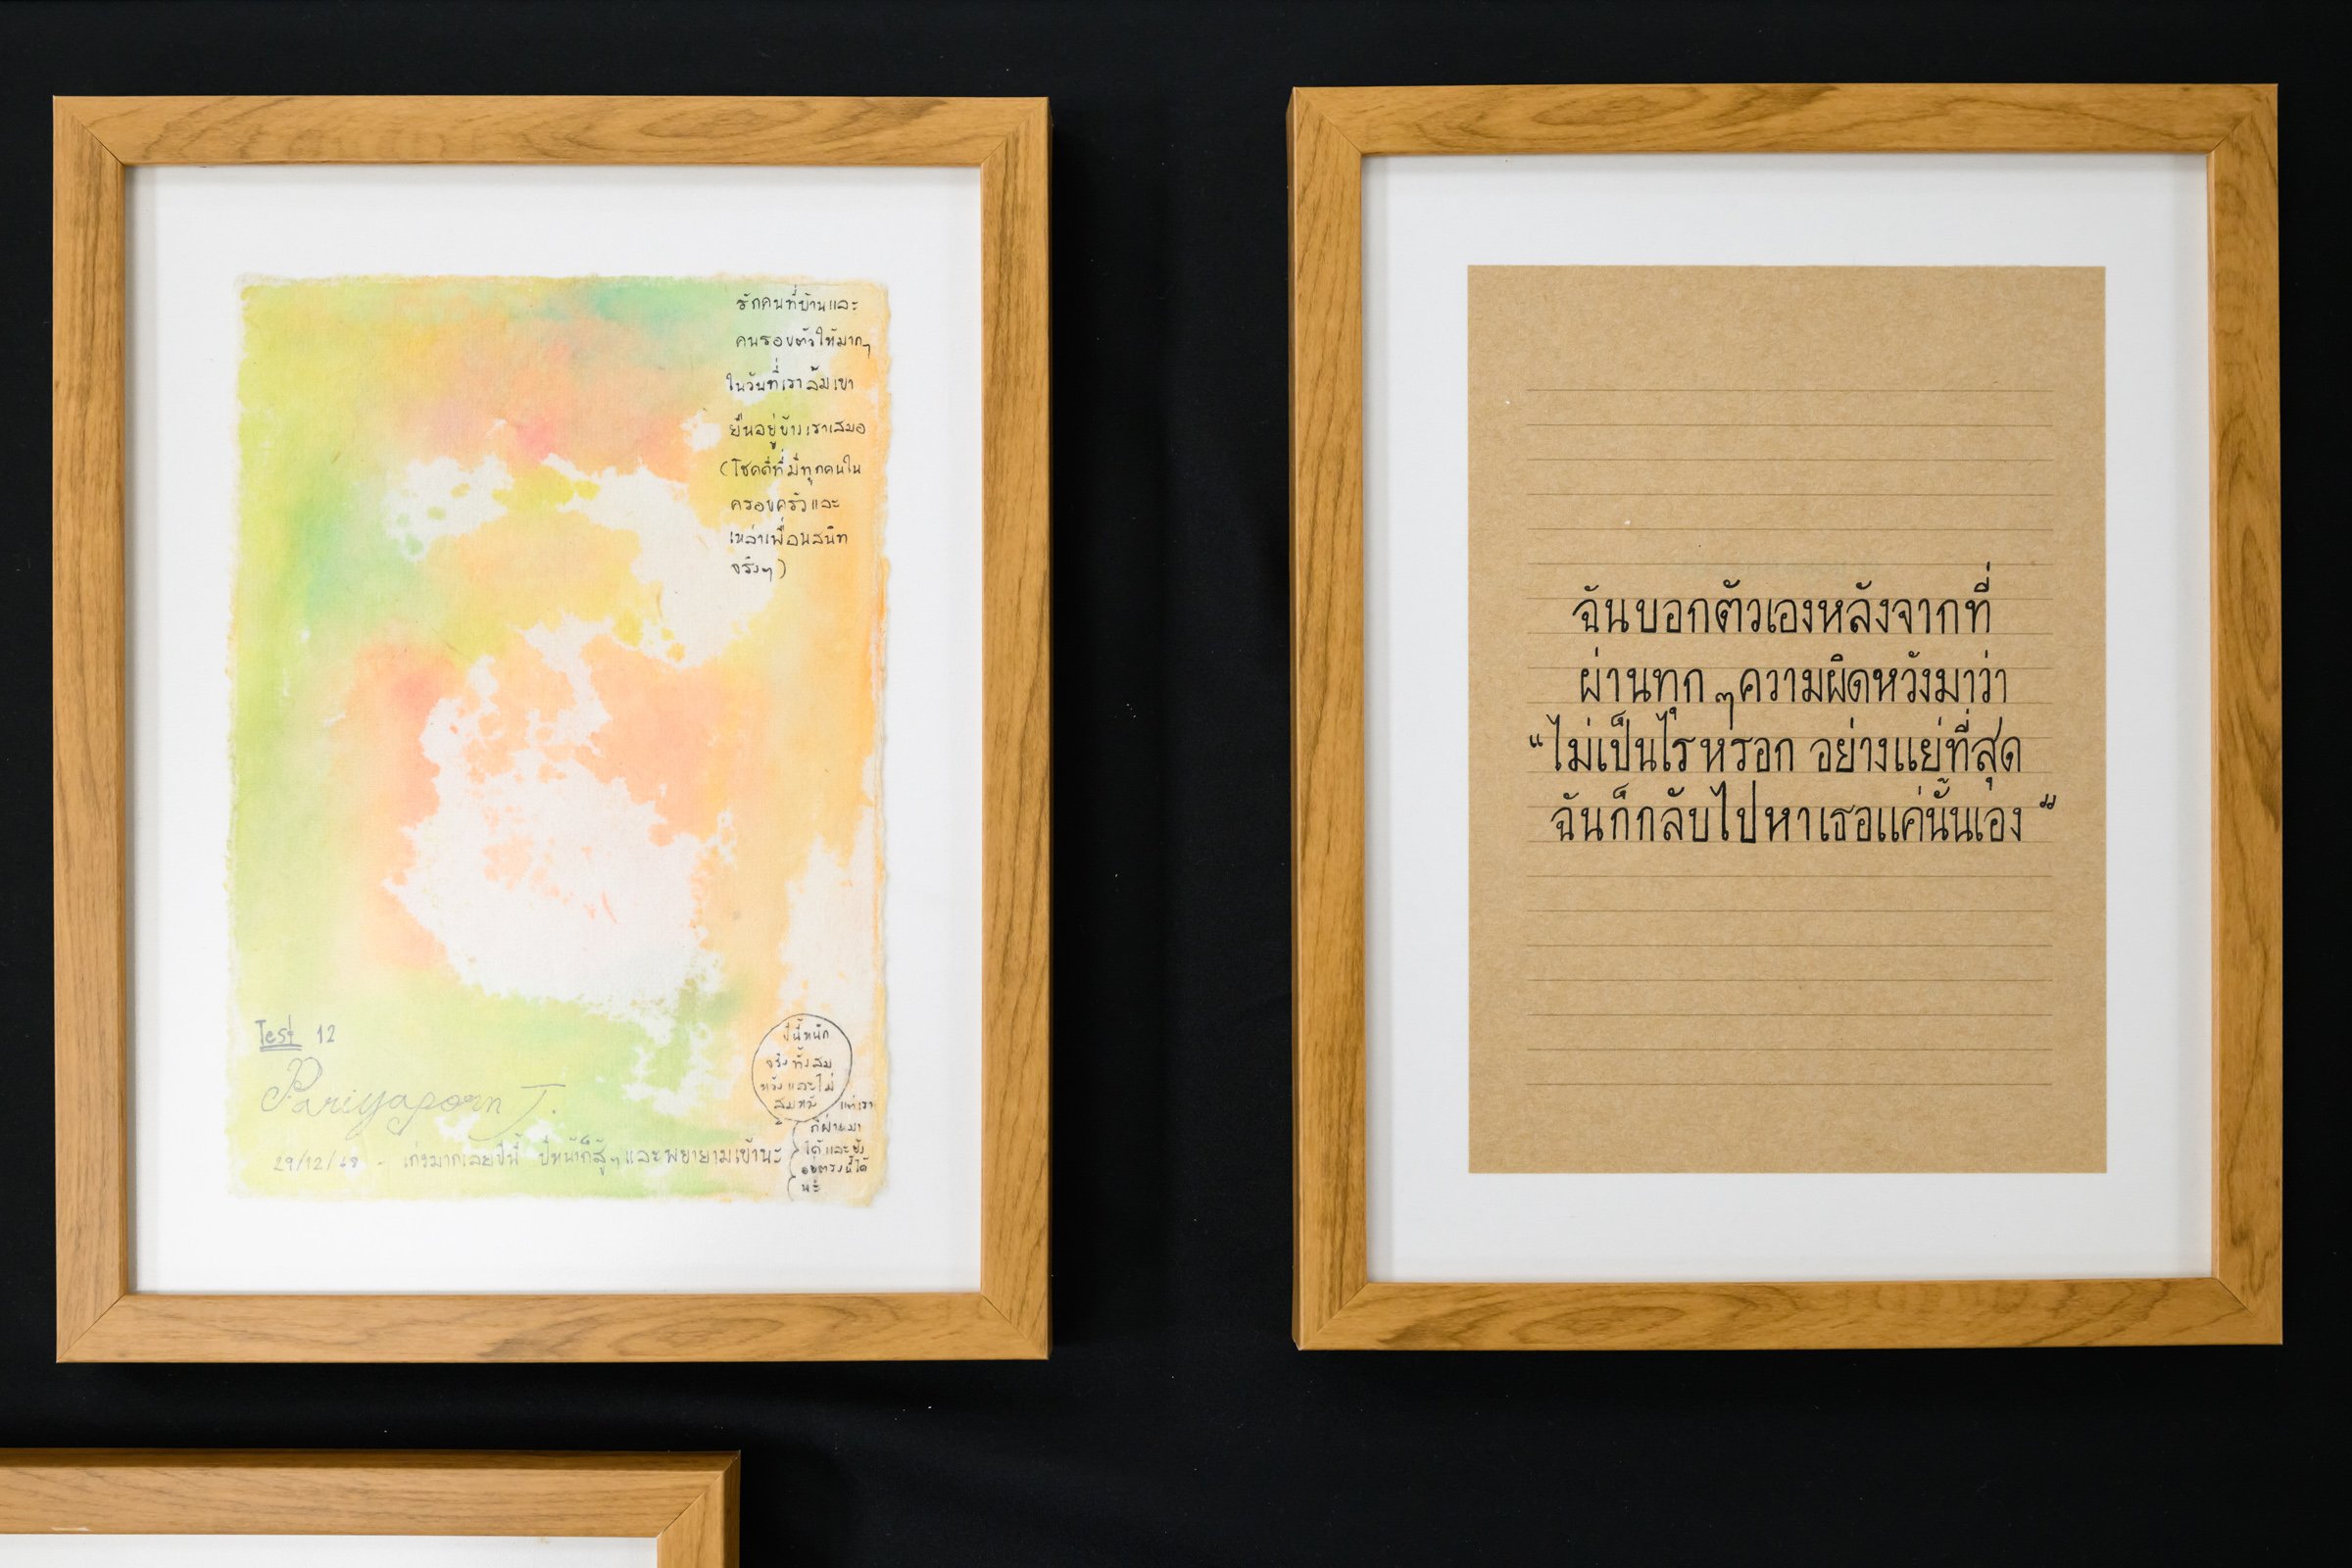 รักคนที่บ้านและ
คนรอบตัวให้มากๆ
ในวันที่เราล้มเขา
ยืนอยู่ข้างเราเสมอ
(โชคดีที่มีทุกคนใน
ครอบครัวและ
เหล่าเพื่อนสนิท
จริงๆ)
Test 12
Pariyaporn T.
29/12/68 - เก่งมากเลยปีนี้ ปีหน้าก็สู้ๆและพยายามเข้านะ
ปีนี้หนัก
จริงทั้งสม
หวังและไม่
สมหวัง แต่เรา
ก็ผ่านมา
ได้และยัง
อยู่ตรงนี้ได้
นะ
ฉันบอกตัวเองหลังจากที่
ผ่านทุกๆความผิดหวังมาว่า
“ไม่เป็นไรหรอก อย่างแย่ที่สุด
ฉันก็กลับไปหาเธอแค่นั้นเอง”